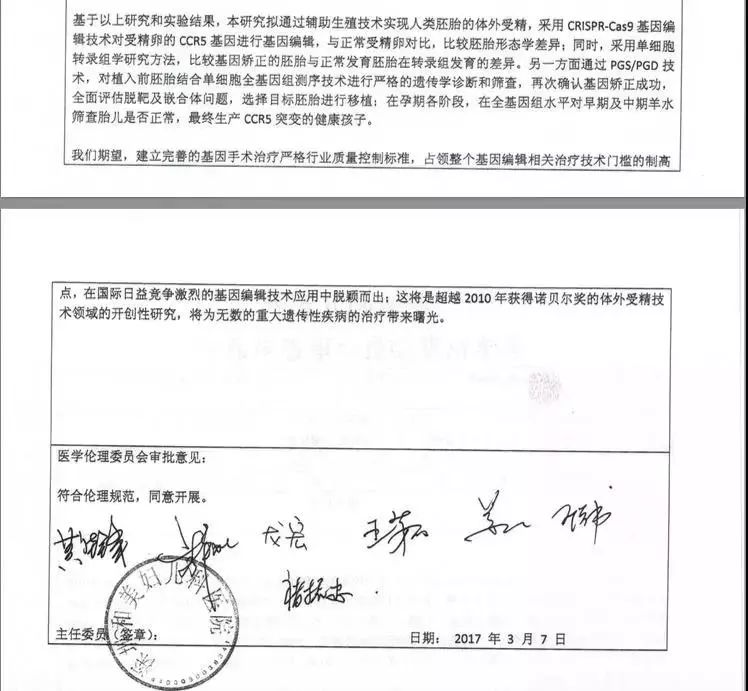 基于以上研究和实验结果，本研究拟通过辅助生殖技术实现人类胚胎的体外受精，采用 CRISPR-Cas9 基因编
辑技术对受精卵的 CCR5 基因进行基因编辑，与正常受精卵对比，比较胚胎形态学差异；同时，采用单细胞
转录组学研究方法，比较基因矫正的胚胎与正常发育胚胎在转录组发育的差异。另一方面通过 PGS/PGD 技
术，对植入前胚胎结合单细胞全基因组测序技术进行严格的遗传学诊断和筛查，再次确认基因矫正成功，
全面评估脱靶及嵌合体问题，选择目标胚胎进行移植；在孕期各阶段，在全基因组水平对早期及中期羊水
筛查胎儿是否正常，最终生产 CCR5 突变的健康孩子。
我们期望，建立完善的基因手术治疗严格行业质量控制标准，占领整个基因编辑相关治疗技术门槛的制高
点，在国际日益竞争激烈的基因编辑技术应用中脱颖而出；这将是超越 2010 年获得诺贝尔奖的体外受精技
术领域的开创性研究，将为无数的重大遗传性疾病的治疗带来曙光。
医学伦理委员会审批意见：
符合伦理规范，同意开展。
深圳和美妇儿科医院
主任委员（签章）：
日期： 2017 年 3 月 7 日